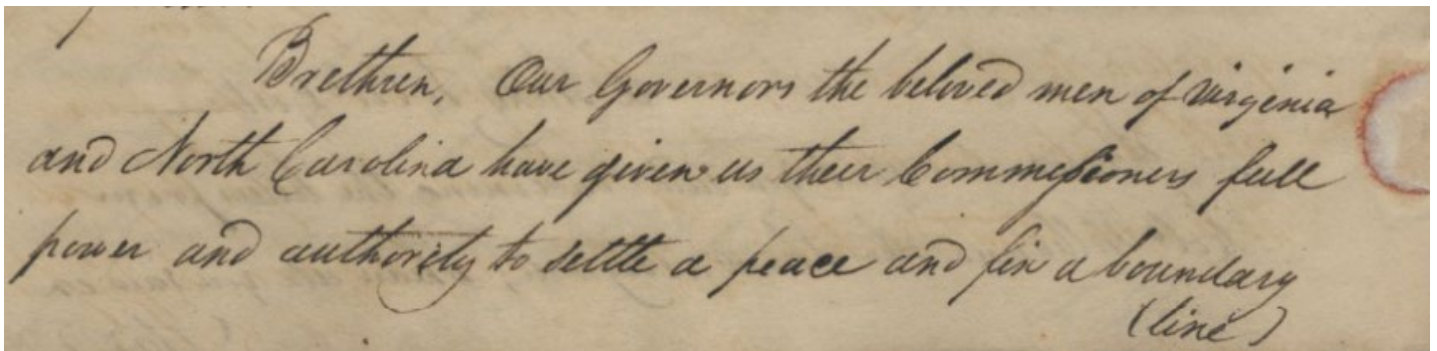 Brethren, Our Governors the beloved men of Virginia
and North Carolina have given us their Commissioners full
power and authority to settle a peace and fix a boundary
(line)